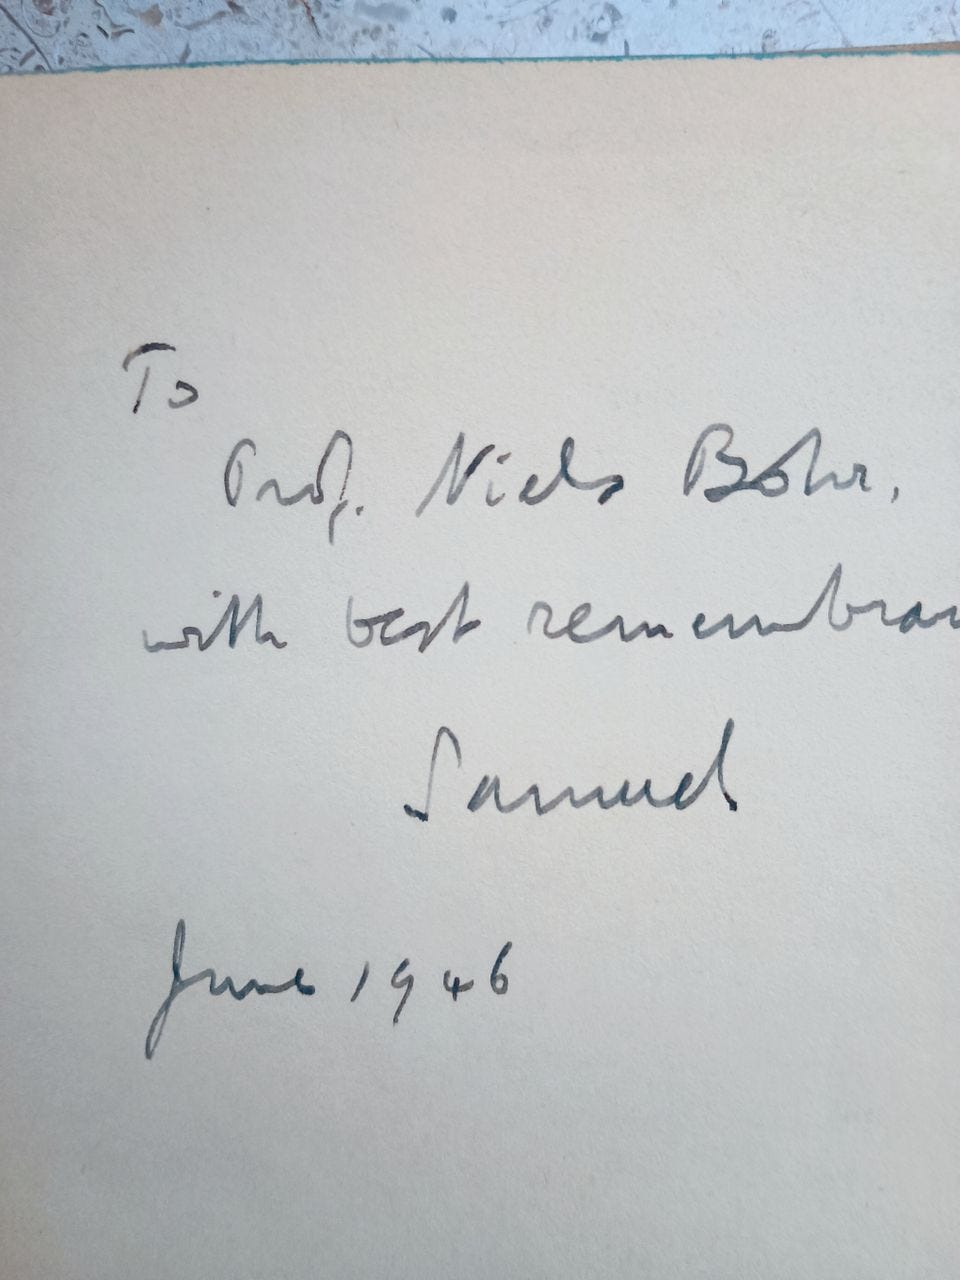 To
Prof. Niels Bohr,
with best remembran
Samuel
June 1946